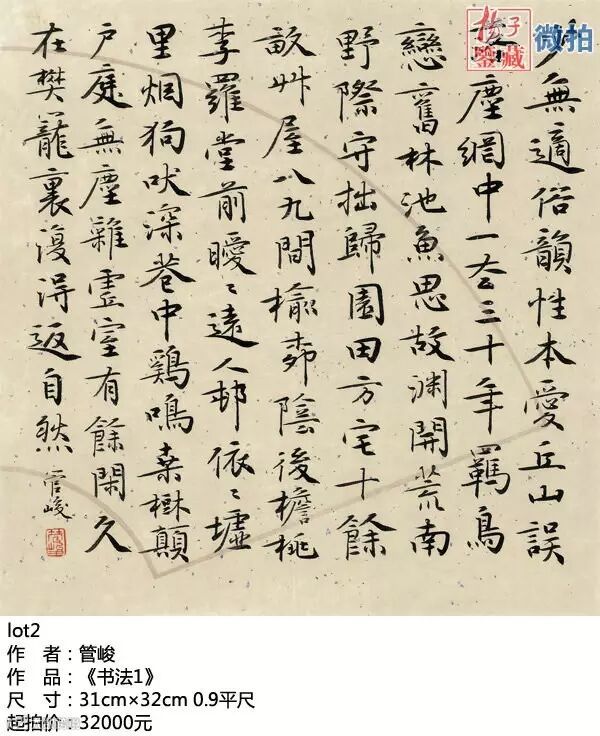 少無適俗韻性本愛丘山誤
塵網中一去三十年羈鳥
戀舊林池魚思故淵開荒南
野際守拙歸園田方宅十餘
畝艸屋八九間榆柳陰後檐桃
李羅堂前曖〻遠人邨依〻墟
里烟狗吠深巷中鷄鳴桑樹顛
户庭無塵雜虛室有餘閑久
在樊籠裏復得返自然 管峻
子鉴藏
微拍
lot2
作 者：管峻
作 品：《书法1》
尺 寸：31cm×32cm 0.9平尺
起拍价：32000元